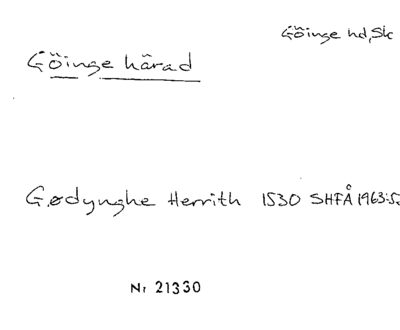 Göinge hd, Sk
Göinge härad
Gødynghe Herrith 1530 SHFÅ 1963:5.
Nr 21330